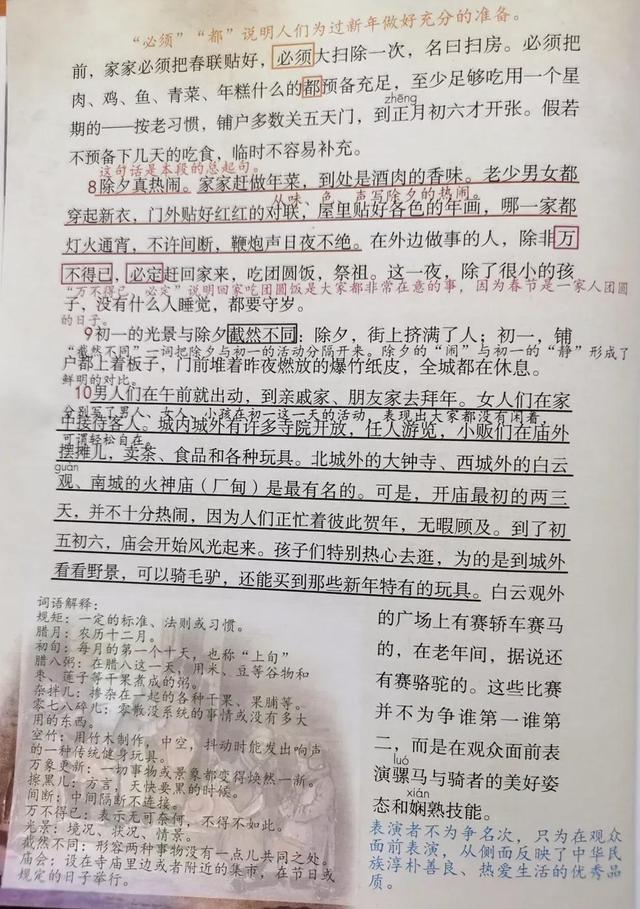 “必须”“都”说明人们为过新年做好充分的准备。
前，家家必须把春联贴好，必须大扫除一次，名曰扫房。必须把
肉、鸡、鱼、青菜、年糕什么的都预备充足，至少足够吃用一个星
zhēng
期的——按老习惯，铺户多数关五天门，到正月初六才开张。假若
不预备下几天的吃食，临时不容易补充。
这句话是本段的总起句。
8除夕真热闹。家家赶做年菜，到处是酒肉的香味。老少男女都
从味、色、声写除夕的热闹。
穿起新衣，门外贴好红红的对联，屋里贴好各色的年画，哪一家都
灯火通宵，不许间断，鞭炮声日夜不绝。在外边做事的人，除非万
不得已，必定赶回家来，吃团圆饭，祭祖。这一夜，除了很小的孩
“万不得已、必定”说明回家吃团圆饭是大家都非常在意的事，因为春节是一家人团圆
子，没有什么人睡觉，都要守岁。
的日子。
9初一的光景与除夕截然不同：除夕，街上挤满了人；初一，铺
“截然不同”一词把除夕与初一的活动分隔开来。除夕的“闹”与初一的“静”形成了
户都上着板子，门前堆着昨夜燃放的爆竹纸皮，全城都在休息。
鲜明的对比。
10男人们在午前就出动，到亲戚家、朋友家去拜年。女人们在家
分别写了男人、女人、小孩在初一这一天的活动，表现出大家都没有闲着，
中接待客人。城内城外有许多寺院开放，任人游览，小贩们在庙外
可谓轻松自在。
摆摊儿，卖茶、食品和各种玩具。北城外的大钟寺、西城外的白云
guàn
观、南城的火神庙（厂甸）是最有名的。可是，开庙最初的两三
天，并不十分热闹，因为人们正忙着彼此贺年，无暇顾及。到了初
五初六，庙会开始风光起来。孩子们特别热心去逛，为的是到城外
看看野景，可以骑毛驴，还能买到那些新年特有的玩具。白云观外
的广场上有赛轿车赛马
的，在老年间，据说还
有赛骆驼的。这些比赛
并不为争谁第一谁第
二，而是在观众面前表
luó
演骡马与骑者的美好姿
xián
态和娴熟技能。
表演者不为争名次，只为在观众
面前表演，从侧面反映了中华民
族淳朴善良、热爱生活的优秀品
质。
词语解释：
规矩：一定的标准、法则或习惯。
腊月：农历十二月。
初旬：每月的第一个十天，也称“上旬”
腊八粥：在腊八这一天，用米、豆等谷物和
枣、莲子等干果煮成的粥。
杂拌儿：掺杂在一起的各种干果、果脯等。
零七八碎儿：零散没系统的事情或没有多大
用的东西。
空竹：用竹木制作，中空，抖动时能发出响声
的一种传统健身玩具。
万象更新：一切事物或景象都变得焕然一新。
擦黑儿：方言，天快要黑的时候。
间断：中间隔断不连接。
万不得已：表示无可奈何，不得不如此。
光景：境况、状况、情景。
截然不同：形容两种事物没有一点儿共同之处。
庙会：设在寺庙里边或者附近的集市，在节日或
规定的日子举行。